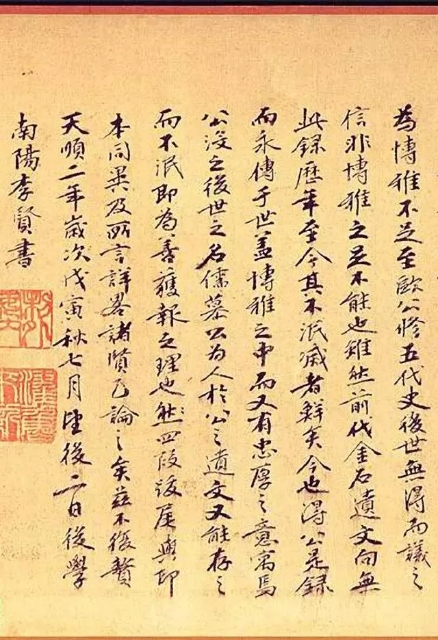 為博雅不足至歐公修五代史後世無得而議之
信非博雅之足不能也雖然前代金石遺文向無
此錄歷年至今其不泯滅者鮮矣今也得公是錄
而永傳于世盖博雅之中而又有忠厚之意寓焉
公沒之後世之名儒慕公為人於公之遺文又能存之
而不泯即為善獲報之理也然四段後尾與印
本同異及所言詳畧諸賢已論之矣茲不復贅
天順二年歲次戊寅秋七月望後二日後學
南陽李賢書